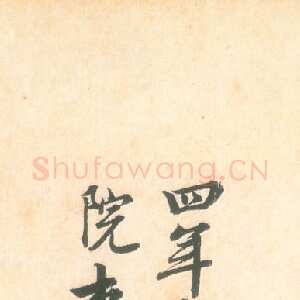 四年
院
Shufawang.CN